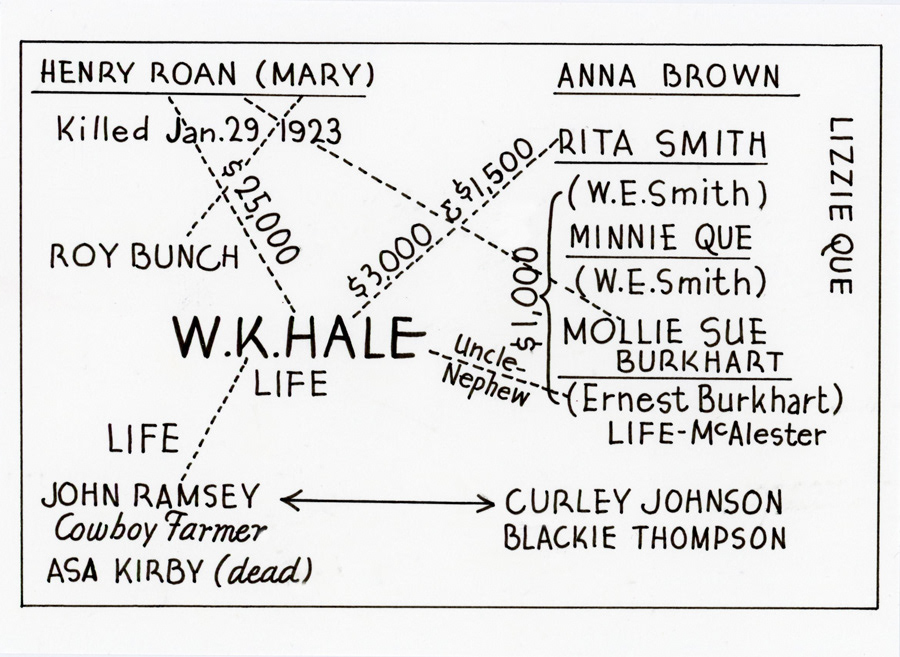 HENRY ROAN (MARY)
Killed Jan. 29, 1923
$25,000
ROY BUNCH
W.K. HALE
LIFE
LIFE
JOHN RAMSEY
Cowboy Farmer
ASA KIRBY (dead)
$3,000 & $1,500
Uncle-
Nephew
$1,000
ANNA BROWN
RITA SMITH
(W.E. Smith)
MINNIE QUE
(W.E. Smith)
MOLLIE SUE
BURKHART
(Ernest Burkhart)
LIFE-McAlester
CURLEY JOHNSON
BLACKIE THOMPSON
LIZZIE QUE